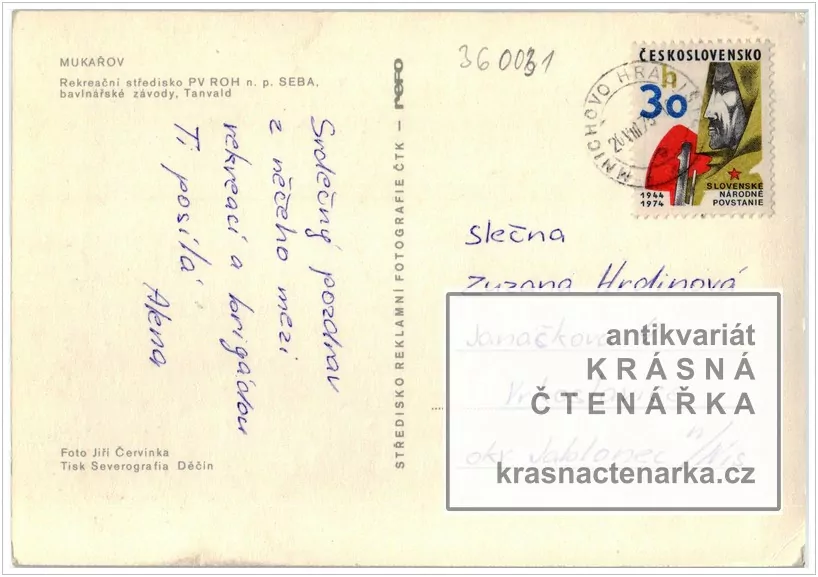 MUKAŘOV
Rekreační středisko PV ROH n. p. SEBA,
bavlnářské závody, Tanvald
Srdečný pozdrav
z něčeho mezi
rekreací a brigádou
Ti posílá
Alena
Foto Jiří Červinka
Tisk Severografia Děčín
STŘEDISKO REKLAMNÍ FOTOGRAFIE ČTK –
360031
ČESKOSLOVENSKO
30
h
1944
1974
SLOVENSKÉ
NÁRODNÉ
POVSTANIE
MNICHOVO
Slečna
Zuzana Hrdinová
okr Jablonec n/Nis
antikvariát
KRÁSNÁ
ČTENÁŘKA
krasnactenarka.cz